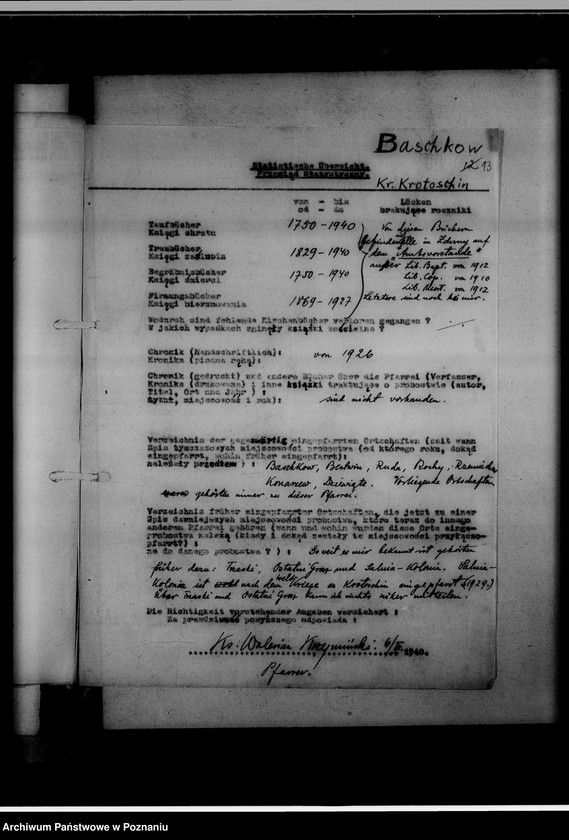 Baschkow
12 13
Statistische Übersicht.
Przegląd Statystyczny.
Kr. Krotoschin
von - bis Lücken
od - do brakujące roczniki
Taufbücher 1750-1940 Von diesen Büchern
Księgi chrztu befinden alle in Zduny auf
Traubücher 1829-1940 dem "Amtsvorstande"
Księgi zaślubin außer Lib. Bapt. von 1912
Begräbnisbücher 1750-1940 Lib. Cop. von 1910
Księgi śmierci Lib. Mort. von 1912
Firmungsbücher 1869-1927 Letztere sind noch bei mir.
Księgi bierzmowania
Wodurch sind fehlende Kirchenbücher verloren gegangen ?
W jakich wypadkach zginęły książki kościelne ?
Chronik (Handschriftlich): von 1926
Kronika (pisana ręką):
Chronik (gedruckt) und andere Bücher über die Pfarrei (Verfasser,
Kronika (drukowana) i inne książki traktujące o probostwie (autor,
Titel, Ort und Jahr) :
tytuł, miejscowość i rok): sind nicht vorhanden.
Verzeichnis der gegenwärtig eingepfarrten Ortschaften (seit wann
Spis tymczasowych miejscowości probostwa (od którego roku, dokąd
eingepfarrt, wohin früher eingepfarrt):
należały przedtem) : Baschkow, Bestwin, Ruda, Rochy,
Konarzew, Dziewiąte. Vorliegende Ortschaften
gehörten immer zu dieser Pfarrei.
Verzeichnis früher eingepfarrter Ortschaften, die jetzt zu einer
Spis dawniejszych miejscowości probostwa, które teraz do innego
anderen Pfarrei gehören (wann und wohin wurden diese Orte einge-
probostwa należą (kiedy i dokąd zostały te miejscowości przyłączo-
pfarrt?) :
ne do danego probostwa ?) : Soweit es mir bekannt ist gehörten
früher dazu: Trzaski, Ostatni Grosz und Salnia-Kolonie. Salnia-
Kolonie ist nach dem Weltkriege zu Krotoschin eingepfarrt (1929.)
über Trzaski und Ostatni Grosz kann ich nichts näher mitteilen.
Die Richtigkeit vorstehender Angaben versichert :
Za prawdziwość powyższego odpowiada :
Ks. Walerian Krzymiński. 6/ 1940.
Pfarrer.
Archiwum Państwowe w Poznaniu